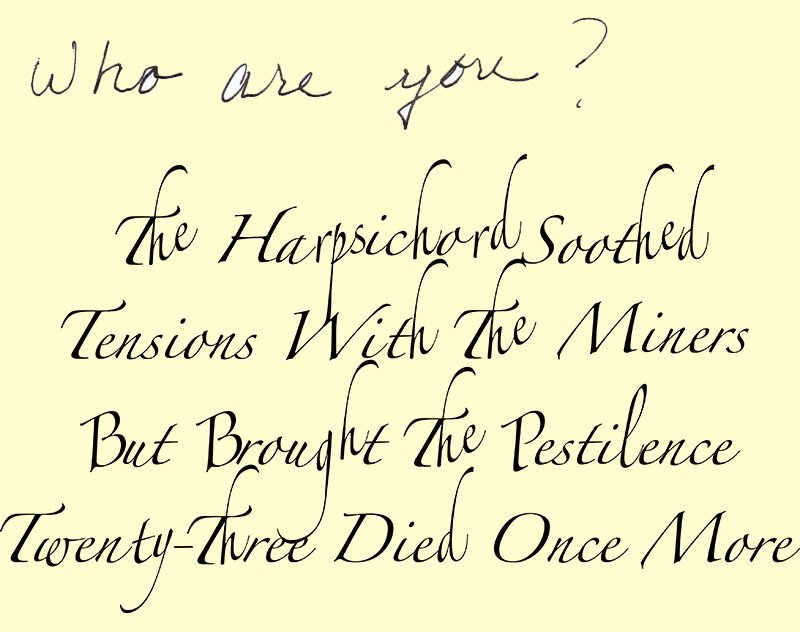 Who are you?
The Harpsichord Soothed
Tensions With The Miners
But Brought The Pestilence
Twenty-Three Died Once More